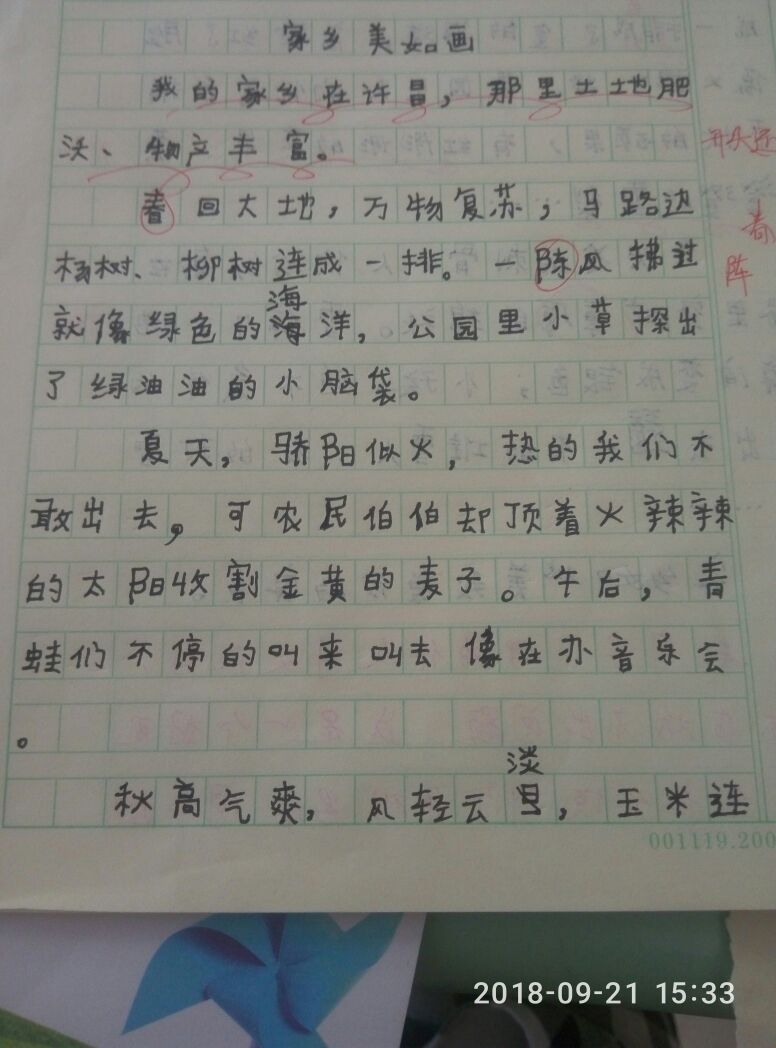 家乡美如画
我的家乡在许昌，那里土地肥
沃、物产丰富。
春回大地，万物复苏，马路边
杨树、柳树连成一排。一陈风拂过
海
就像绿色的海洋，。公园里小草探出
了绿油油的小脑袋。
夏天，骄阳似火，热的我们不
敢出去，可农民伯伯却顶着火辣辣
的太阳收割金黄的麦子。午后，青
蛙们不停的叫来叫去像在办音乐会
。
淡
秋高气爽，风轻云，玉米连
开头
春
阵
001119.200
2018-09-21 15:33